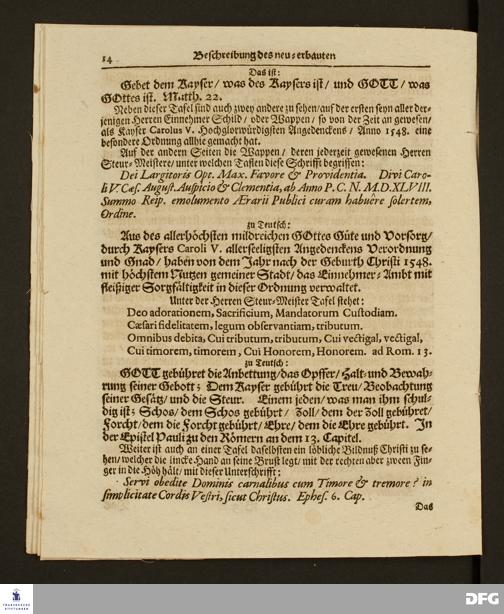 14 Beschreibung des neu-erbauten
Das ist:
Gebet dem Kayser/ was des Kaysers ist/ und GOTT/ was
GOttes ist. Matth. 22.
Neben dieser Tafel sind auch zwey andere zu sehen/ auf der ersten seyn aller der-
jenigen Herren Einnehmer Schild/ oder Wappen/ so von der Zeit an gewesen/
als Kayser Carolus V. Hochglorwürdigsten Angedenckens/ Anno 1548. eine
besondere Ordnung allhie gemacht hat.
Auf der andern Seiten die Wappen/ deren jederzeit gewesenen Herren
Steur-Meistere/ unter welchen Tafflen diese Schrifft begriffen:
Dei Largitoris Opt. Max. Favore & Providentia. Divi Caro-
li V. Cæs. August. Auspicio & Clementia, ab Anno P. C. N. M.D.XLVIII.
Summo Reip. emolumento Ærarii Publici curam habuêre solertem,
Ordine.
zu Teutsch:
Aus des allerhöchsten mildreichen GOttes Güte und Vorsorg/
durch Kaysers Caroli V. allerseeligsten Angedenckens Verordnung
und Gnad/ haben von dem Jahr nach der Geburth Christi 1548.
mit höchstem Nutzen gemeiner Stadt/ das Einnehmer-Ambt mit
fleißiger Sorgfältigkeit in dieser Ordnung verwaltet.
Unter der Herren Steur-Meister Tafel stehet:
Deo adorationem, Sacrificium, Mandatorum Custodiam.
Cæsari fidelitatem, legum observantiam, tributum.
Omnibus debita, Cui tributum, tributum, Cui vectigal, vectigal,
Cui timorem, timorem, Cui Honorem, Honorem. ad Rom. 13.
zu Teutsch:
GOTT gebühret die Anbettung/ das Opffer/ Halt- und Bewah-
rung seiner Gebott; Dem Kayser gebührt die Treu/ Beobachtung
seiner Gesätz/ und die Steur. Einem jeden/ was man ihm schul-
dig ist; Schos/ dem Schos gebührt/ Zoll/ dem der Zoll gebühret/
Forcht/ dem die Forcht gebührt/ Ehre/ dem die Ehre gebührt. In
der Epistel Pauli zu den Römern an dem 13. Capitel.
Weiter ist auch an einer Tafel daselbsten ein löbliche Bildnuß Christi zu se-
hen/ welcher die lincke Hand an seine Brust legt/ mit der rechten aber zween Fin-
ger in die Höh hält/ mit dieser Unterschrifft:
Servi obedite Dominis carnalibus cum Timore & tremore? in
simplicitate Cordis Vestri, sicut Christus. Ephes. 6. Cap.
Das
FRANCKESCHE
STIFTUNGEN
DFG